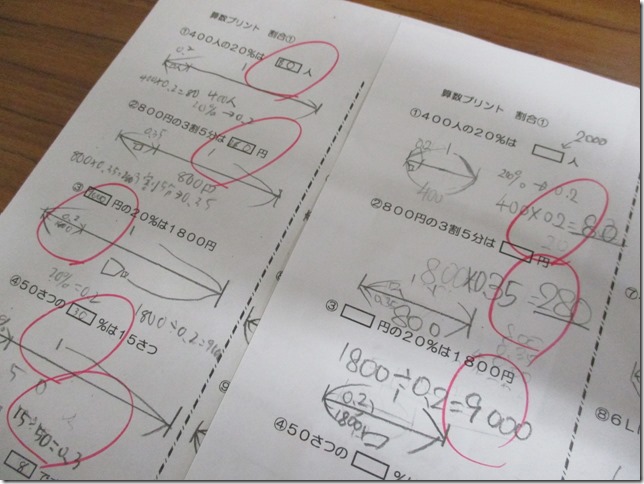 算数プリント 割合①
①400人の20%は 80 人
0.2
1
400×0.2=80 400人
20%→0.2
②800円の3割5分は 円
0.35
1
800円
③ 円の20%は1800円
0.2
1
20%=0.2
1800÷0.2=
④50さつの 30 %は15さつ
1
50
15÷50=0.3
8
⑨
算数プリント 割合①
2000
①400人の20%は 人
0.2 1
400
20%→0.2
400×0.2=80
②800円の3割5分は 円
800×0.35=280
0.35 1
800
③ 円の20%は1800円
1800÷0.2=9000
0.2 1
1800
④50さつの %
⑦
⑧6L